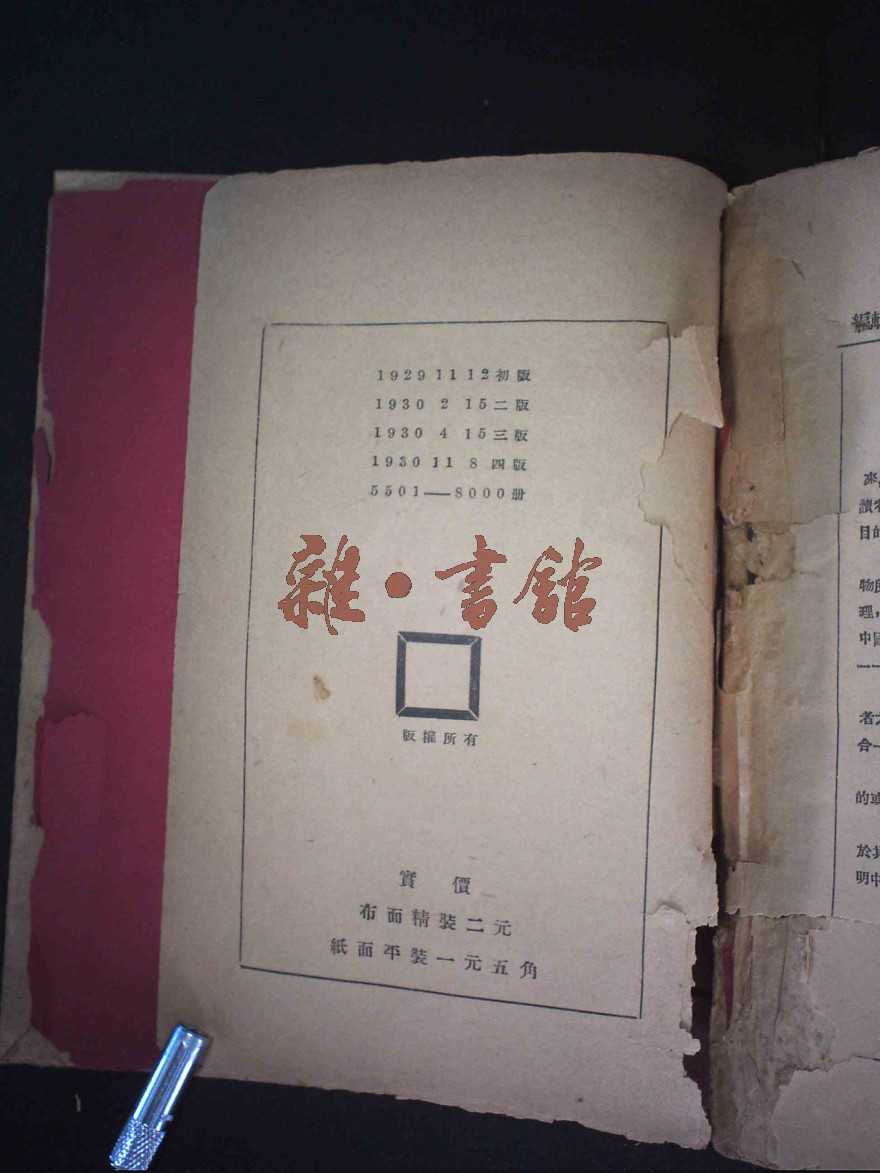 1929 11 12初版
1930 2 15二版
1930 4 15三版
1930 11 8四版
5501——8000册
雜·書館
版權所有
實價
布面精裝二元
紙面平裝一元五角
編輯
來
讀
目的
物
理，
中國
一一
者
合一
的或
於其
明中